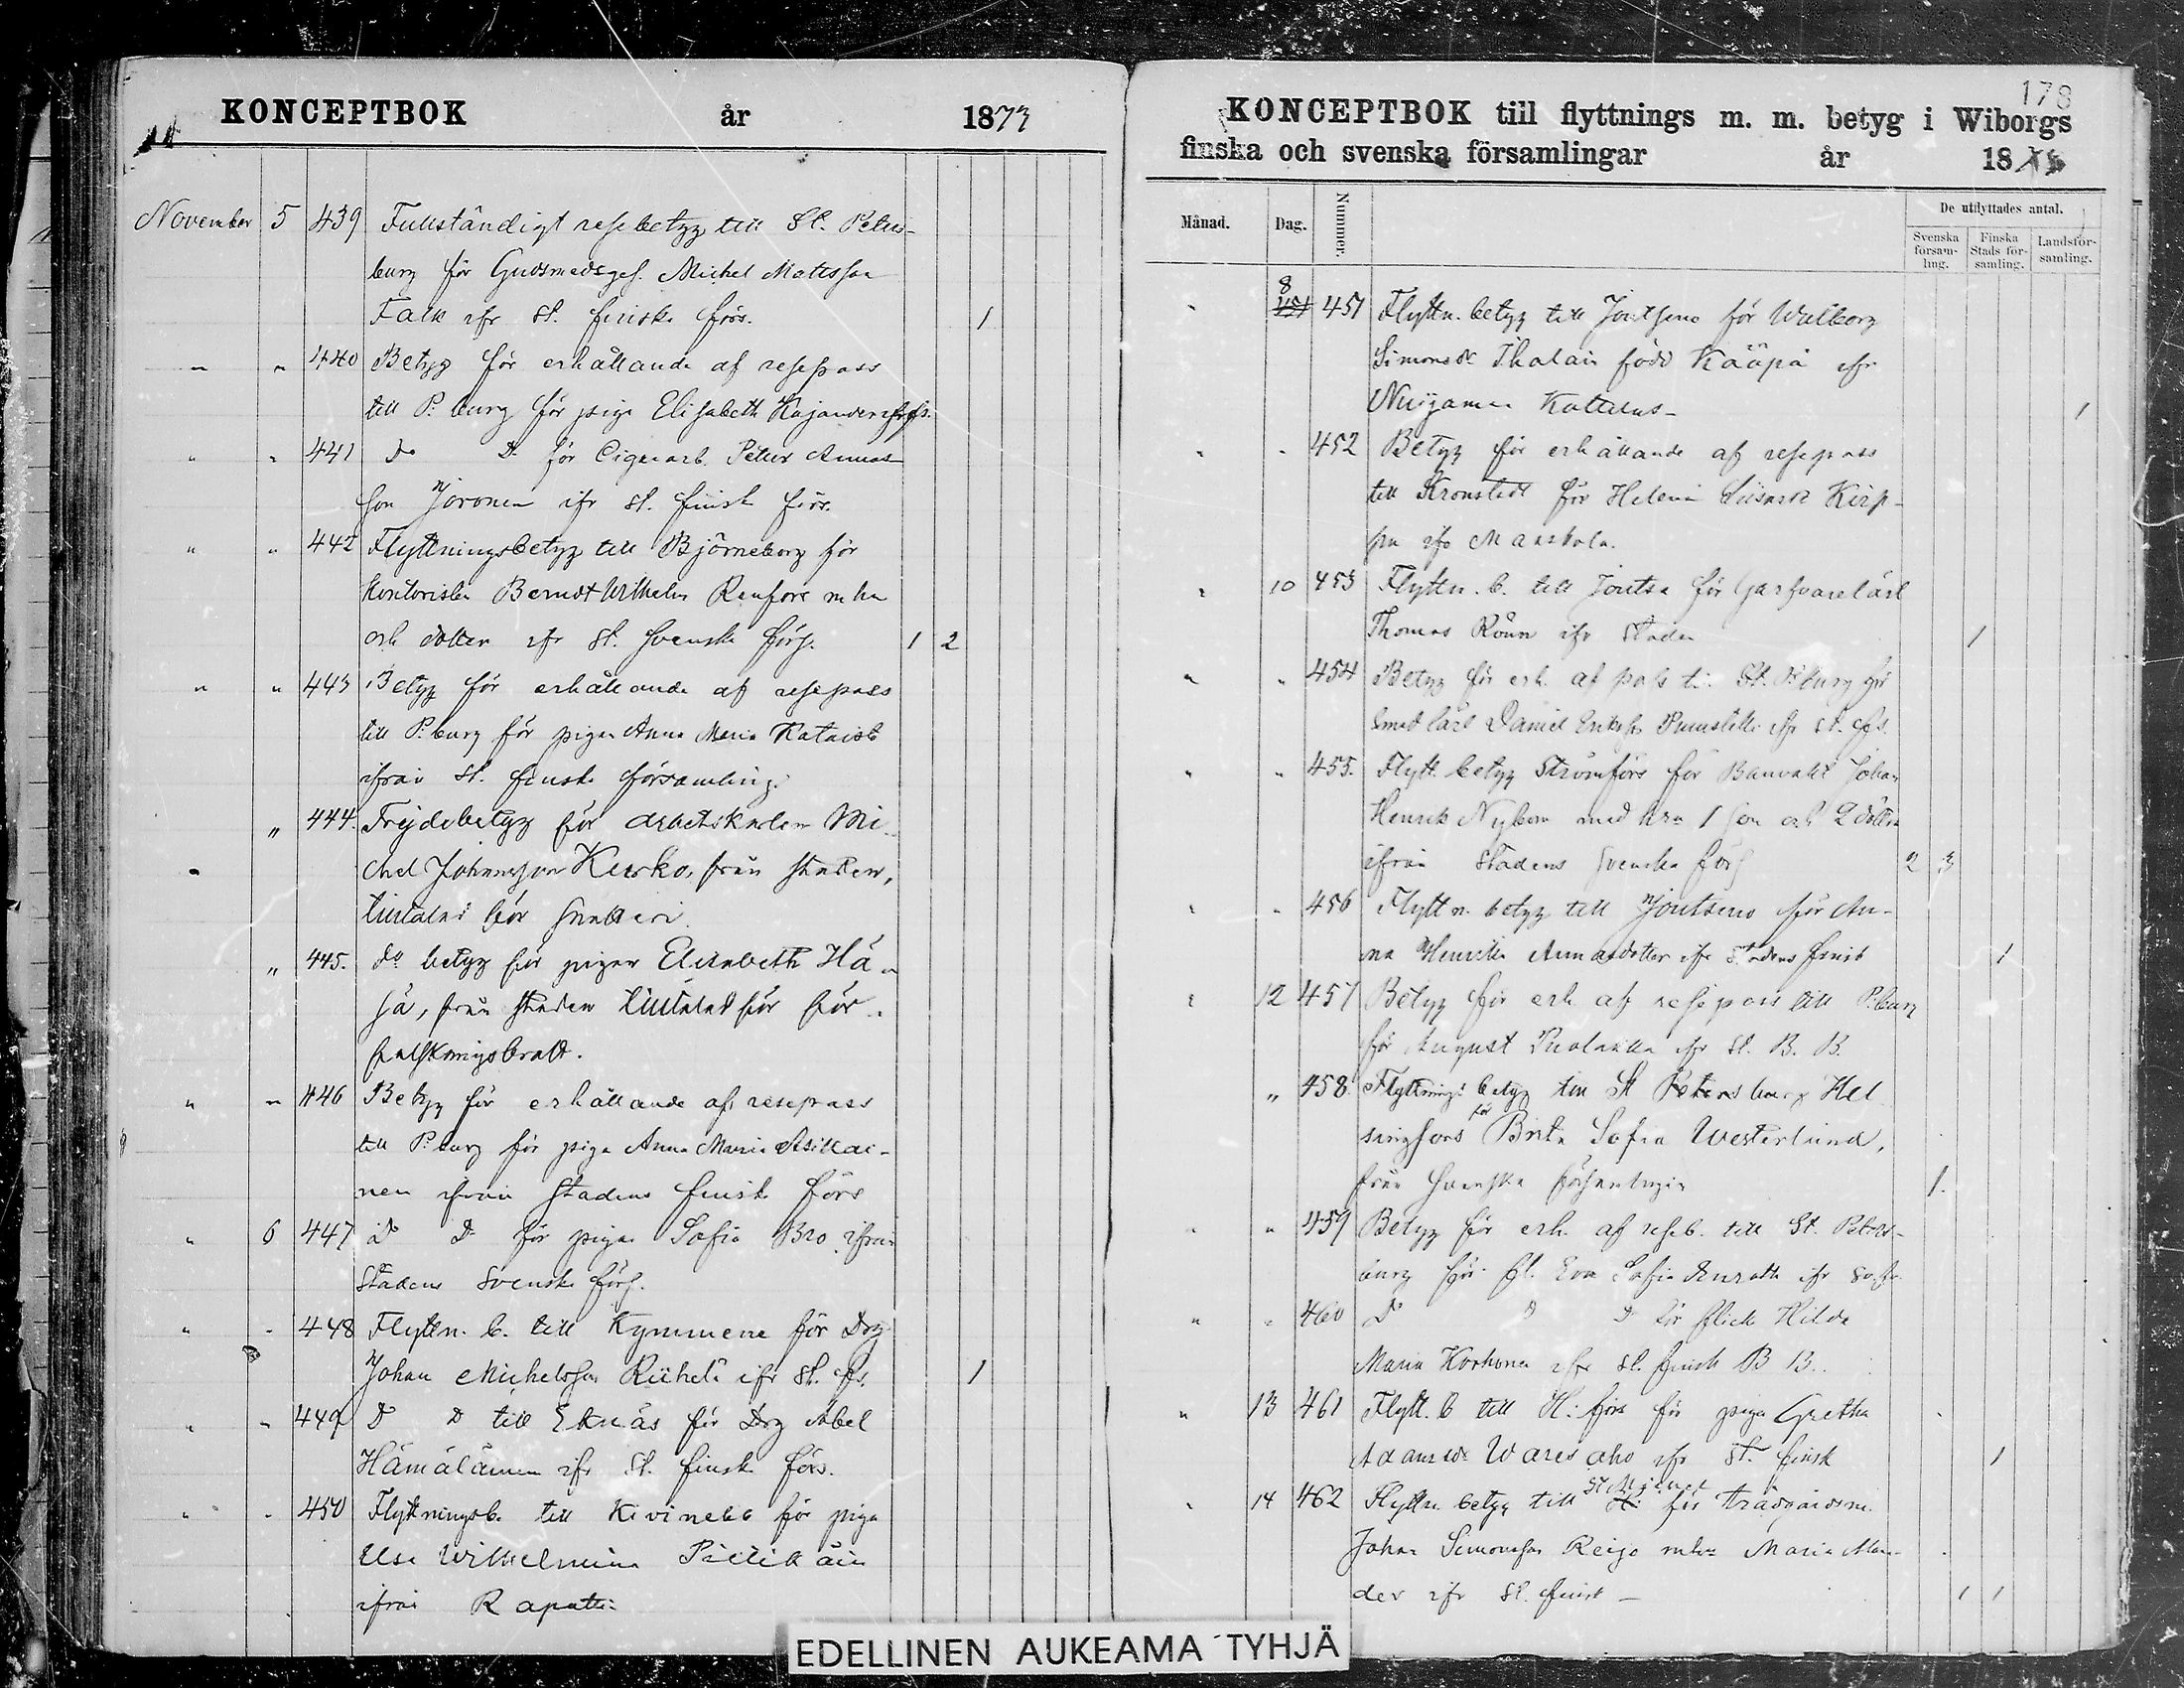 KONCEPTBOK år 1873
November 5 439 Fullständigt resebetyg till St. Peters-
burg för Gudsmedsges. Michel Matsson
Falk ifr st. finska förs. 1
" " 440 Betyg för erhållande af resepass
till P:burg för piga Elisabeth Kajander
" " 441 Do Do för Cigararb. Petter Annas-
son Joronen ifr st. finsk förs.
" " 442 Flyttningsbetyg till Björneborg för
Kontoristen Berndt Wilhelm Renfors m hu
och dotter ifr St. svenska förs. 1 2
" " 443 Betyg för erhållande af resepass
till P:burg för pigan Anna Maria
ifrån st. finska församling.
" 444. Frejdebetyg för arbetskarlen Mi-
chel Johansson Kurko, från staden,
tilltalad för snatteri.
" 445. do betyg för pigan Elisabeth Hä-
jä, från staden tilltalad för för-
falskningsbrott.
" " 446 Betyg för erhållande af resepass
till P:burg för piga Anna Maria Asikai-
nen ifrån stadens finsk förs
" 6 447 Do Do för pigan Sofia Bro ifrån
Stadens Svenska förs.
" " 448 Flyttn. b. till Kymmene för Drg
Johan Michelsson Riihelä ifr St. fs. 1
" " 449 Do Do till Eknäs för Drg Abel
Hämäläinen ifr St. finsk förs.
" " 450 Flyttningsb. till Kivinebb för piga
Ulsa Wilhelmina
ifrån
178
KONCEPTBOK till flyttnings m. m. betyg i Wiborgs
finska och svenska församlingar år 18
Månad. Dag. Nummer. De utflyttades antal.
Svenska församling. Finska Stads församling. Landsförsamling.
" 8 451 Flyttn. betyg till Joutseno för Walborg
Simonsdr Ihalain född Kääpä ifr
Nuijamaa 1
" " 452 Betyg för erhållande af resepass
till Kronstedt för Helena Kirp-
pu ifr Maaskola.
" 10 453 Flyttn. b. till Joutsa för Garfvarelärl
Thomas Rönn ifr Staden 1
" " 454 Betyg för erh. af pass ti. St. P:burg för
smed lärl Daniel Eriksson ifr St. fs.
" " 455. Flytt. betyg Strömfors för Banvakt Johan
Henrik Nybom med hu 1 son och 2 döttr
ifrån Stadens svenska förs 2 3
" " 456 Flyttn. betyg till Joutseno för An-
na Henrika Annasdotter ifr Stadens finsk 1
" 12 457 Betyg för erh af resepass till P:burg
för August ifr St. B. B.
" 458. Flyttnings betyg till St Petersburg Hel
singfors för Brita Sofia Westerlund,
från Svenska församlingen 1.
" " 459 Betyg för erh. af reseb. till St. Peters-
burg för fl. Eva Sofia ifr
" " 460 Do Do Do för flick Hilda
Maria Korhonen ifr st. finsk B B.
" 13 461 Flytt. b till H:fors för piga Gretha
Adamsdr Waresaho ifr St. finsk 1
" 14 462 Flyttn. betyg till St Michel för trädgårdsm.
Johan Simonsson Reijo m hu Maria Man-
der ifr St. finsk 1 1
EDELLINEN AUKEAMA TYHJÄ